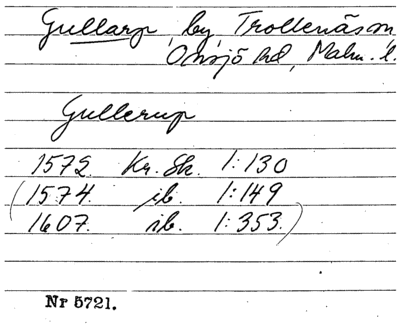 Gullarp, by, Trollenäs sn
Onsjö hd, Malm. l.
Gullerup
1572. Kr. Sk. 1:130
(1574. ib. 1:149
1607. ib. 1:353.)
Nr 5721.